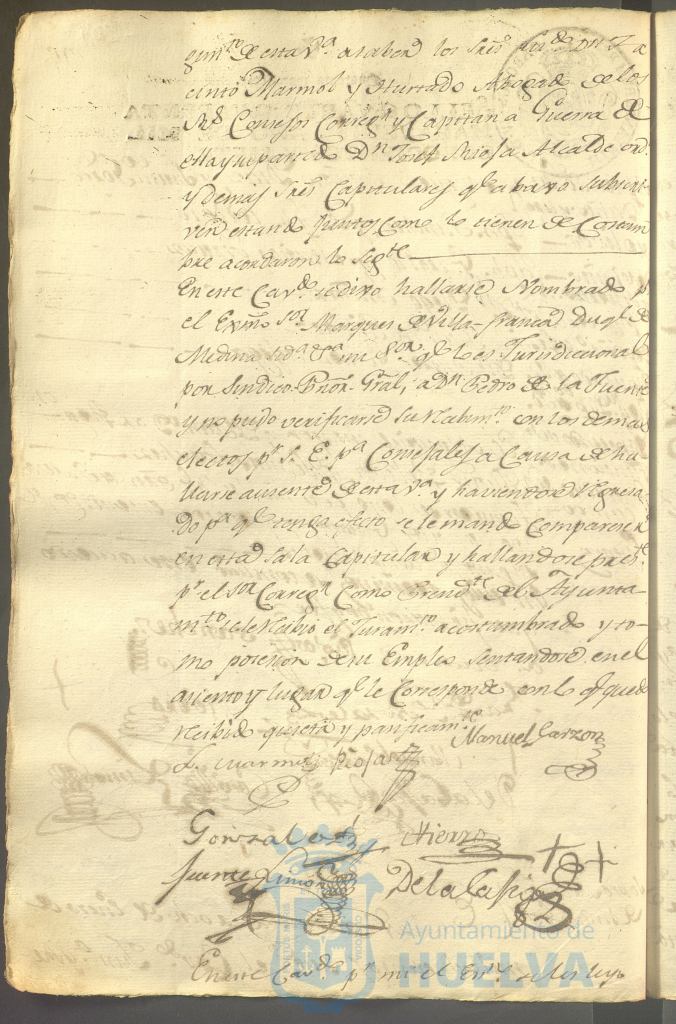 gim.to de esta V.a a saber los Sres Liz.do Dn Ja
cinto Marmol y Hurtado Abogado de los
Rs Consejos Correg.r y Capitan a Guerra de
ella y su partido Dn Josef Miosa Alcalde ord.o
y demas Sres Capitulares q.e abaxo subscri
ven estando juntos como lo tienen de Costum
bre acordaron lo sig.te
En este Cav.do se dixo hallarse Nombrado p.r
el Exmo Sor Marques de Villa-franca Duq.e de
Medina Sid.a mi Sor q.e lo es Jurisdiccional
por Sindico Pror Gral, a Dn Pedro de la Fuente
y no pudo verificarse su recibim.to con los demas
electos p.r S. E. p.a Consejales a Causa de ha
llarse ausente de esta V.a y haviendose regresa
do p.a q.e tenga efecto se le mando comparecer
en esta Sala Capitular y hallandose pres.te
p.r el Sor Correg.r como Presid.te del Ayunta
m.to se le recibio el Juram.to acostumbrado y to
mo posesion de su Empleo sentandose en el
asiento y lugar q.e le corresponde con lo q.e quedo
recibido quieta y pacificam.te
Manuel Garzon
Gonzalez
Hierro
fuente
De la
Ayuntamiento de
HUELVA
En este Cav.do p.r mi el Es.no se les leyo